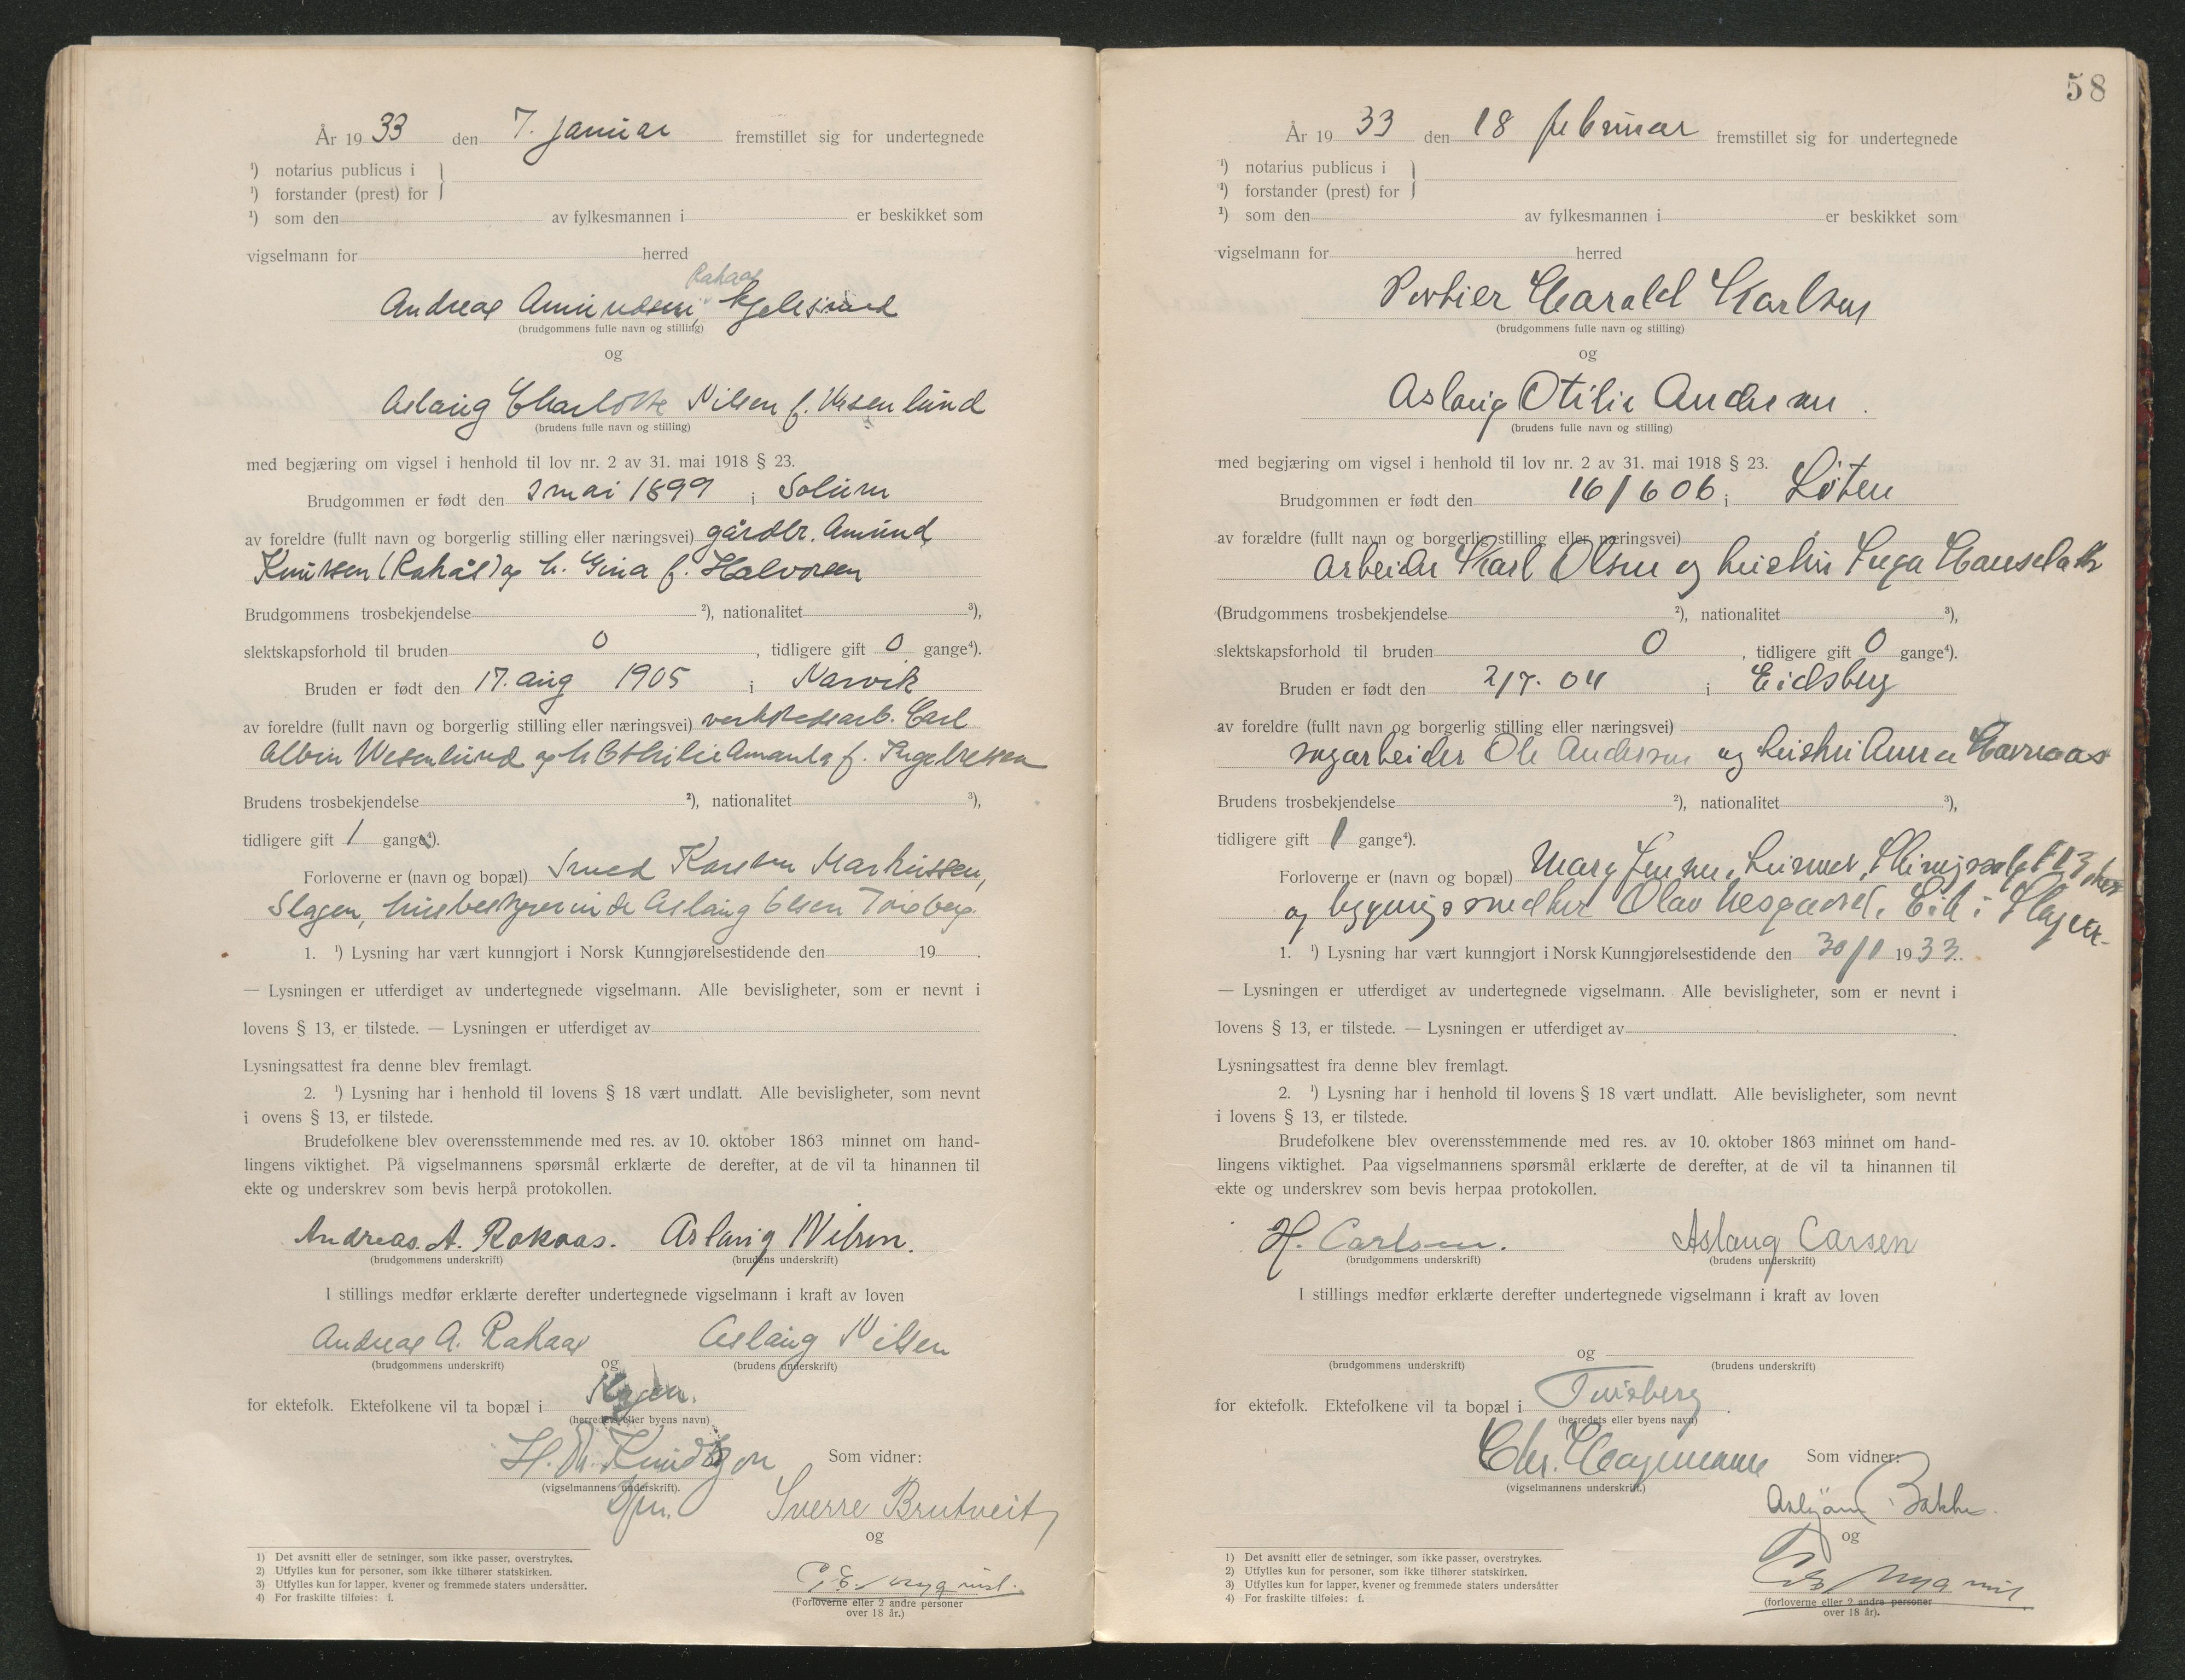 År 19 33 den 7. januar fremstillet sig for undertegnede
¹) notarius publicus i
¹) forstander (prest) for
¹) som den av fylkesmannen i er beskikket som
vigselmann for herred
Rahaas
Andreas Amundsen,
(brudgommens fulle navn og stilling)
og
Aslaug Charlotte Nilsen f. Wesenlund
(brudens fulle navn og stilling)
med begjæring om vigsel i henhold til lov nr. 2 av 31. mai 1918 § 23.
Brudgommen er født den 2 mai 1899 i Solum
av foreldre (fullt navn og borgerlig stilling eller næringsvei) gårdbr. Amund
Knutsen (Rahås) og h. Gina f. Halvorsen
Brudgommens trosbekjendelse ²), nationalitet ³),
slektskapsforhold til bruden 0, tidligere gift 0 gange⁴).
Bruden er født den 17. aug 1905 i Narvik
av foreldre (fullt navn og borgerlig stilling eller næringsvei) verkstedsarb. Carl
Albin Wesenlund og h Othilie Amanda f. Ingebretsen
Brudens trosbekjendelse ²), nationalitet ³),
tidligere gift 1 gange⁴).
Forloverne er (navn og bopæl) Smed Karsten Markussen,
Slagen, husbestyrerinde Aslaug Olsen Tønsberg.
1. ¹) Lysning har vært kunngjort i Norsk Kunngjørelsestidende den 19 .
— Lysningen er utferdiget av undertegnede vigselmann. Alle bevisligheter, som er nevnt i
lovens § 13, er tilstede. — Lysningen er utferdiget av
Lysningsattest fra denne blev fremlagt.
2. ¹) Lysning har i henhold til lovens § 18 vært undlatt. Alle bevisligheter, som nevnt
i ovens § 13, er tilstede.
Brudefolkene blev overensstemmende med res. av 10. oktober 1863 minnet om hand-
lingens viktighet. På vigselmannens spørsmål erklærte de derefter, at de vil ta hinannen til
ekte og underskrev som bevis herpå protokollen.
Andreas. A. Rakaas. Aslaug Nilsen.
(brudgommens underskrift) (brudens underskrift)
I stillings medfør erklærte derefter undertegnede vigselmann i kraft av loven
Andreas A. Rahaas Aslaug Nilsen
(brudgommens underskrift) og (brudens underskrift)
for ektefolk. Ektefolkene vil ta bopæl i
(herredets eller byens navn)
H. Th. Knudtzon Som vidner:
(vigselmannens underskrift).
Sverre Brutveit
og
(Forloverne eller 2 andre personer
over 18 år.)
1) Det avsnitt eller de setninger, som ikke passer, overstrykes.
2) Utfylles kun for personer, som ikke tilhører statskirken.
3) Utfylles kun for lapper, kvener og fremmede staters undersåtter.
4) For fraskilte tilføies: f.
58
År 19 33 den 18 februar fremstillet sig for undertegnede
¹) notarius publicus i
¹) forstander (prest) for
¹) som den av fylkesmannen i er beskikket som
vigselmann for herred
Portier Harald Karlsen
(brudgommens fulle navn og stilling)
og
Aslaug Otilie Andersen.
(brudens fulle navn og stilling)
med begjæring om vigsel i henhold til lov nr. 2 av 31. mai 1918 § 23.
Brudgommen er født den 16/6 06 i Løten
av forældre (fullt navn og borgerlig stilling eller næringsvei)
Arbeider Karl Olsen og hustru Inga
(Brudgommens trosbekjendelse ²), nationalitet ³),
slektskapsforhold til bruden 0, tidligere gift 0 gange⁴).
Bruden er født den 2/7. 04 i Eidsberg
av foreldre (fullt navn og borgerlig stilling eller næringsvei)
sagarbeider Ole Andersen og hustru Anna Havnaas
Brudens trosbekjendelse ²), nationalitet ³),
tidligere gift 1 gange⁴).
Forloverne er (navn og bopæl) Mary Jensen,
og bygningssnedker Olav Nesgaard, Eik i Slagen.
1. ¹) Lysning har vært kunngjort i Norsk Kunngjørelsestidende den 30/1 1933.
— Lysningen er utferdiget av undertegnede vigselmann. Alle bevisligheter, som er nevnt i
lovens § 13, er tilstede. — Lysningen er utferdiget av .
Lysningsattest fra denne blev fremlagt.
2. ¹) Lysning har i henhold til lovens § 18 vært undlatt. Alle bevisligheter, som nevnt
i lovens § 13, er tilstede.
Brudefolkene blev overensstemmende med res. av 10. oktober 1863 minnet om hand-
lingens viktighet. Paa vigselmannens spørsmål erklærte de derefter, at de vil ta hinannen til
ekte og underskrev som bevis herpaa protokollen.
H. Carlsen. Aslaug Carsen
(brudgommens underskrift) (brudens underskrift)
I stillings medfør erklærte derefter undertegnede vigselmann i kraft av loven
og
(brudgommens underskrift) (brudens underskrift)
for ektefolk. Ektefolkene vil ta bopæl i Tønsberg.
(herredets eller byens navn)
Chr. Hagemann Som vidner:
(vigselmannens underskrift.)
Asbjørn Bakke.
og
(forloverne eller 2 andre personer
over 18 år).
1) Det avsnitt eller de setninger, som ikke passer, overstrykes.
2) Utfylles kun for personer, som ikke tilhører statskirken.
3) Utfylles kun for lapper, kvener og fremmede staters undersåtter
4) For fraskilte tilføies: f.